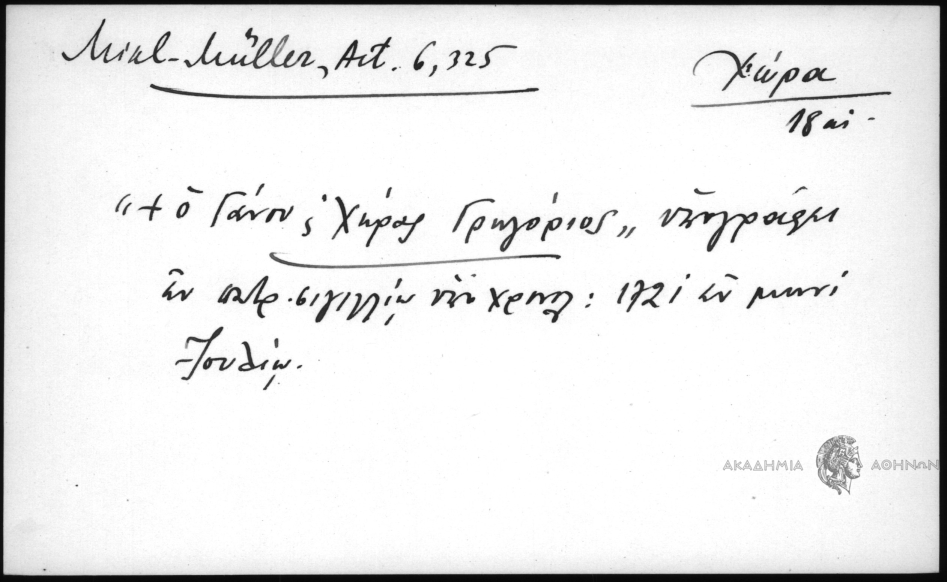 Mikl-Müller, Act. 6,325
Χώρα
18 αἰ.
"+ ὁ Γάνου ϛ Χώρας Γρηγόριος„ ὑπογράφει
ἐν πατρ. σιγιλλίῳ ὑπὸ χρονολ: 1721 ἐν μηνὶ
Ἰουλίῳ.
ΑΚΑΔΗΜΙΑ ΑΘΗΝΩΝ